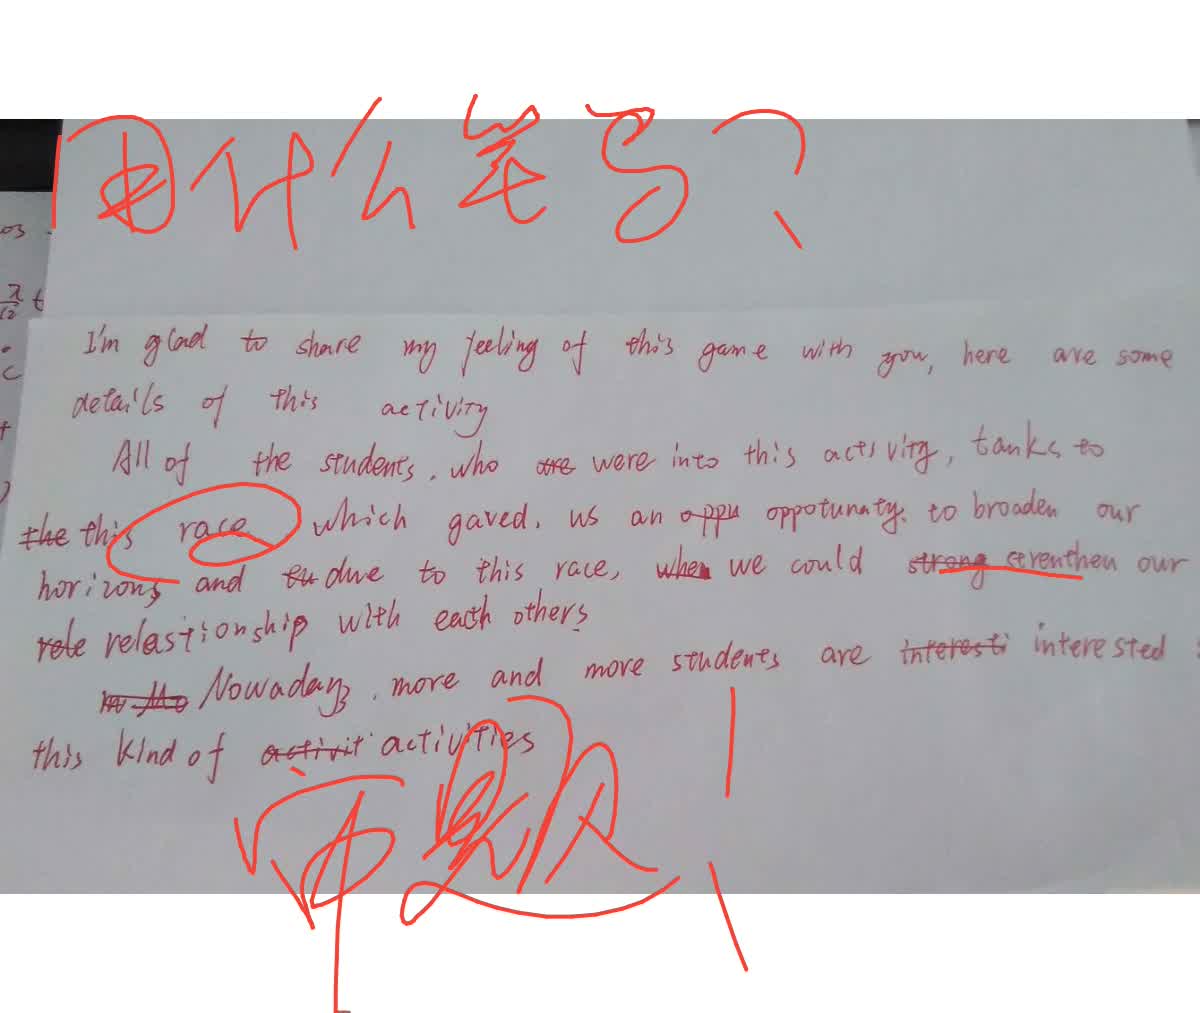 用什么笔写？
I'm glad to share my feeling of this game with you, here are some
details of this activity
All of the students. who are were into this activity, tanks to
the this race which gaved. us an oppu oppotunaty. to broaden our
horizons and tu due to this race, when we could strong strenthen our
rele relastionship with each others.
in Mo Nowadays. more and more students are interesti interested
this kind of activit activities
审题！